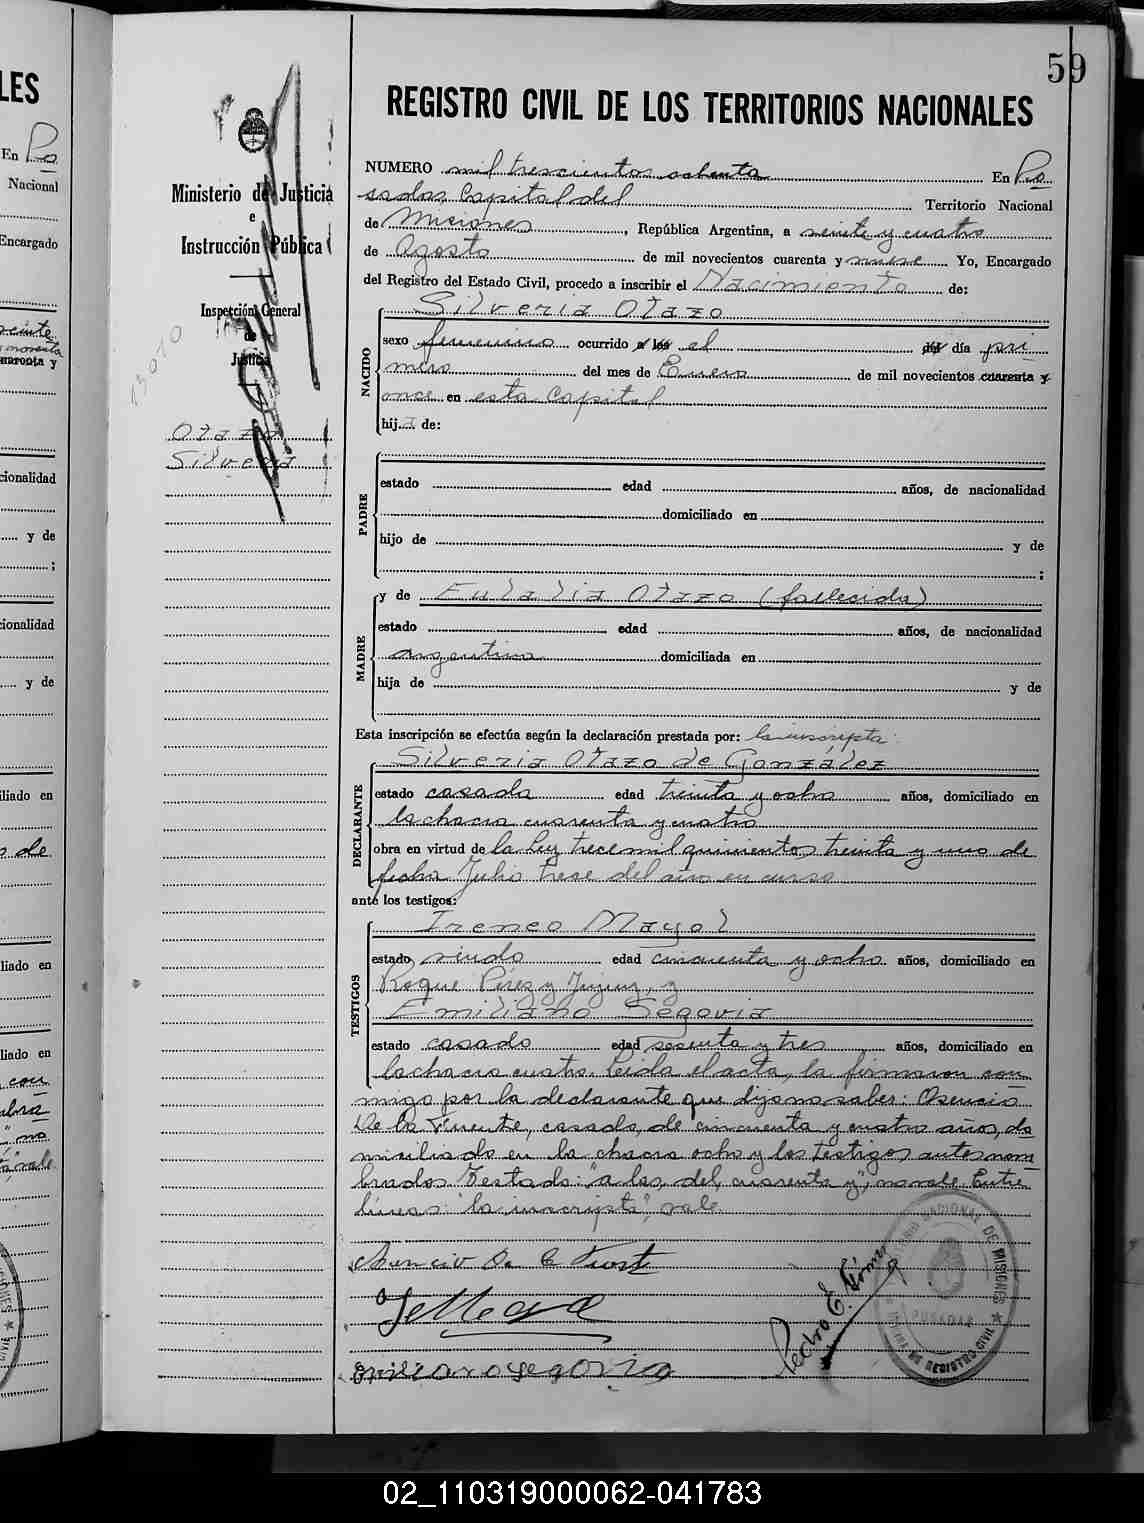 59
REGISTRO CIVIL DE LOS TERRITORIOS NACIONALES
Ministerio de Justicia
e
Instrucción Pública
Inspección General
de
Justicia
13070
Otazo
Silveria
NUMERO mil trescientos ochenta En Po
sadas Capital del Territorio Nacional
de Misiones, República Argentina, a veinte y cuatro
de Agosto de mil novecientos cuarenta y nueve Yo, Encargado
del Registro del Estado Civil, procedo a inscribir el Nacimiento de:
Silveria Otazo
NACIDO
sexo femenino ocurrido a las el del día pri
mero del mes de Enero de mil novecientos cuarenta y
once en esta Capital
hija de:
PADRE
estado edad años, de nacionalidad
domiciliado en
hijo de y de
;
MADRE
y de Eulalia Otazo (fallecida)
estado edad años, de nacionalidad
argentina domiciliada en
hija de y de
Esta inscripción se efectúa según la declaración prestada por: la inscripta
DECLARANTE
Silveria Otazo de González
estado casada edad treinta y ocho años, domiciliado en
la chacra cuarenta y cuatro
obra en virtud de la Ley trece mil quinientos treinta y uno de
fecha Julio trece del año en curso
ante los testigos:
TESTIGOS
Ireneo Mayol
estado viudo edad cincuenta y ocho años, domiciliado en
Roque Pérez y Jujuy, y
Emiliano Segovia
estado casado edad sesenta y tres años, domiciliado en
la chacra cuatro. Leída el acta, la firmaron con
migo por la declarante que dijo no saber: Asencio
De la Fuente, casado, de cincuenta y cuatro años, do
miciliado en la chacra ocho y los testigos antes nom
brados. Testado: "a las, del, cuarenta y", no vale. Entre
líneas: "la inscripta", vale.
Pedro E. Gómez
Emiliano Segovia
NACIONAL DE MISIONES
POSADAS
REGISTRO CIVIL
LES
En Po
Nacional
Encargado
cuarenta y
nacionalidad
y de
;
nacionalidad
y de
domiciliado en
de
domiciliado en
domiciliado en
con
no
vale
02_110319000062-041783